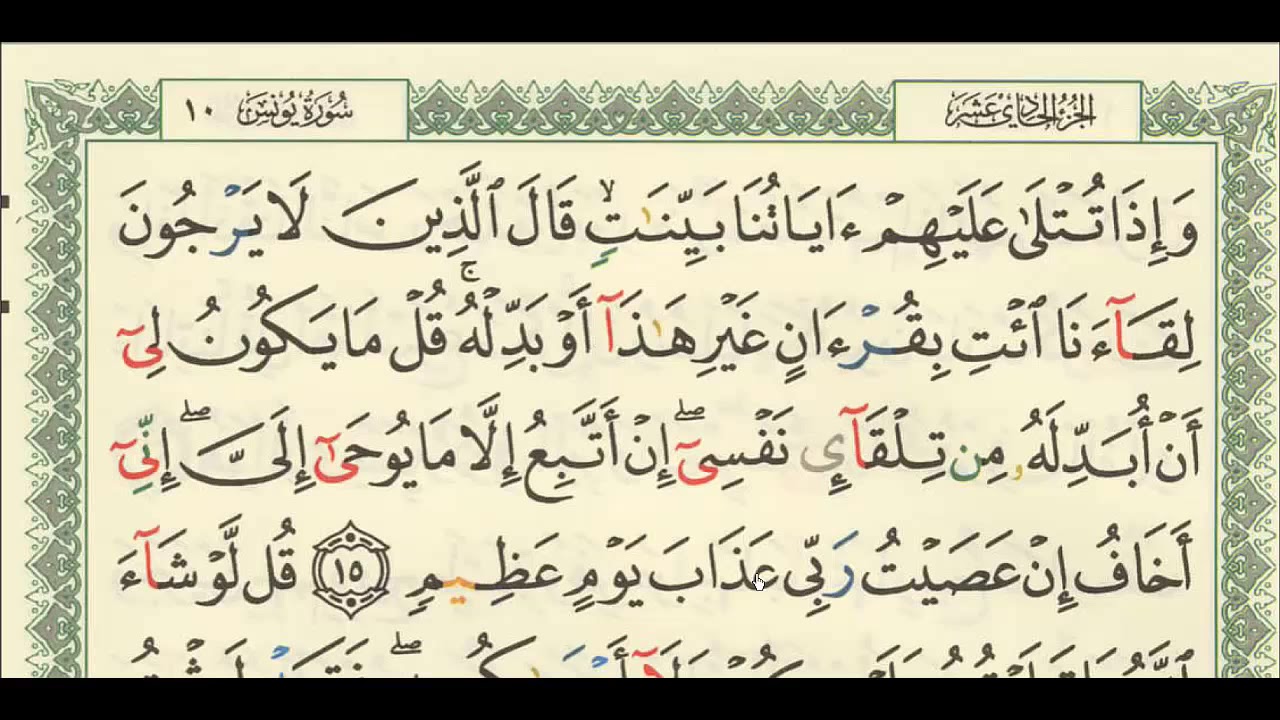 الجزء الحادي عشر
سورة يونس ١٠
وَإِذَا تُتْلَىٰ عَلَيْهِمْ ءَايَاتُنَا بَيِّنَٰتٍ ۙ قَالَ ٱلَّذِينَ لَا يَرْجُونَ
لِقَآءَنَا ٱئْتِ بِقُرْءَانٍ غَيْرِ هَٰذَآ أَوْ بَدِّلْهُ ۚ قُلْ مَا يَكُونُ لِىٓ
أَنْ أُبَدِّلَهُۥ مِن تِلْقَآئِ نَفْسِىٓ ۖ إِنْ أَتَّبِعُ إِلَّا مَا يُوحَىٰٓ إِلَىَّ ۖ إِنِّىٓ
أَخَافُ إِنْ عَصَيْتُ رَبِّى عَذَابَ يَوْمٍ عَظِيمٍ ١٥ قُل لَّوْ شَآءَ